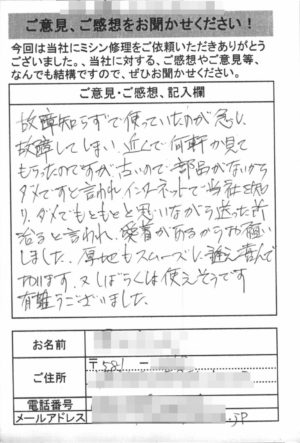 ご意見、ご感想をお聞かせください！
今回は当社にミシン修理をご依頼いただきありがとう
ございました。、当社に対する、ご感想やご意見等、
なんでも結構ですので、ぜひお聞かせください。
ご意見・ご感想、記入欄
故障知らずで使っていたのが急に
故障してしまい近くで何軒か見て
もらったのですが古いので部品がないから
ダメですと言われインターネットで当社を知
り、ダメでもともとと思いながら送った所
治ると言われ、愛着があるからお願い
しました。厚地もスムーズに縫え喜んで
おります。又しばらくは使えそうです
有難うございました。
お名前
ご住所 〒581-
電話番号
メールアドレス .jp